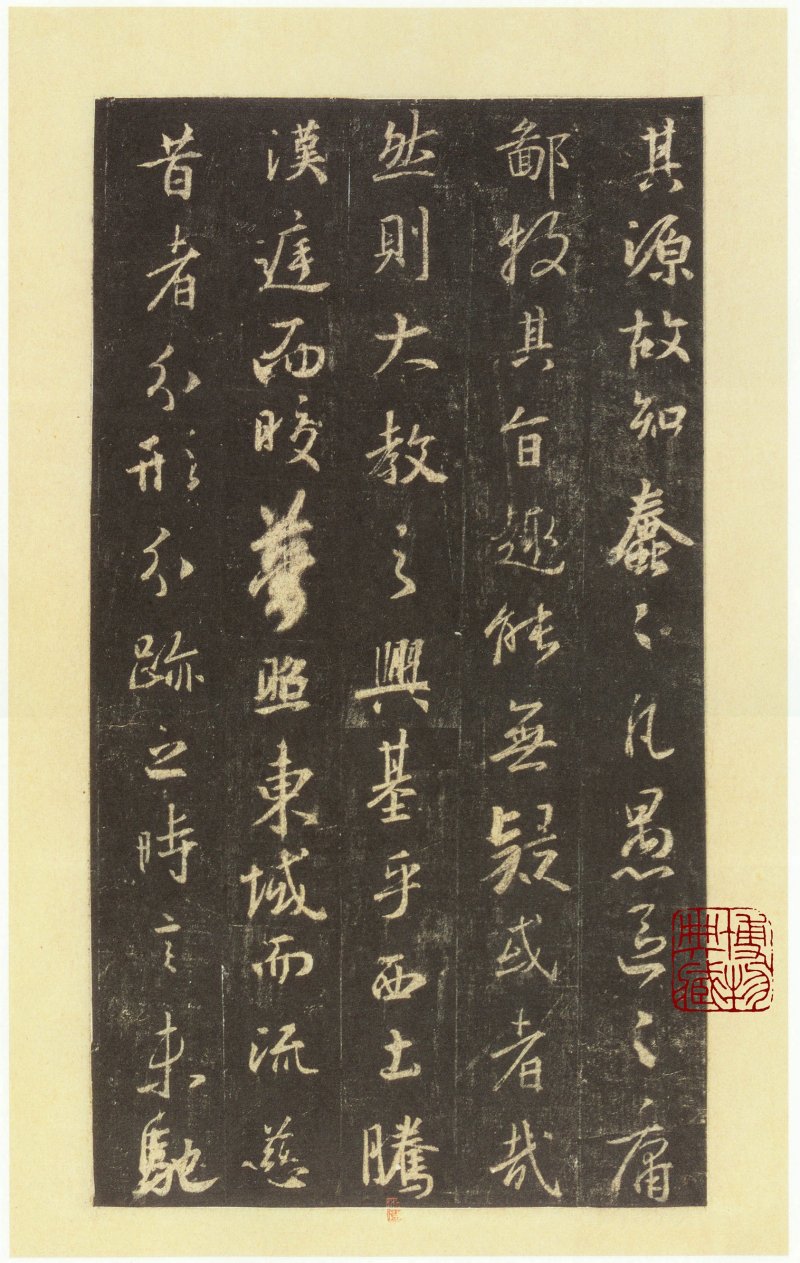 其源故知蠢々凡愚區々庸
鄙投其旨趣能無疑或者哉
然則大教之興基乎西土騰
漢庭而晈夢照東域而流慈
昔者分形分跡之時言未馳
博物
典藏